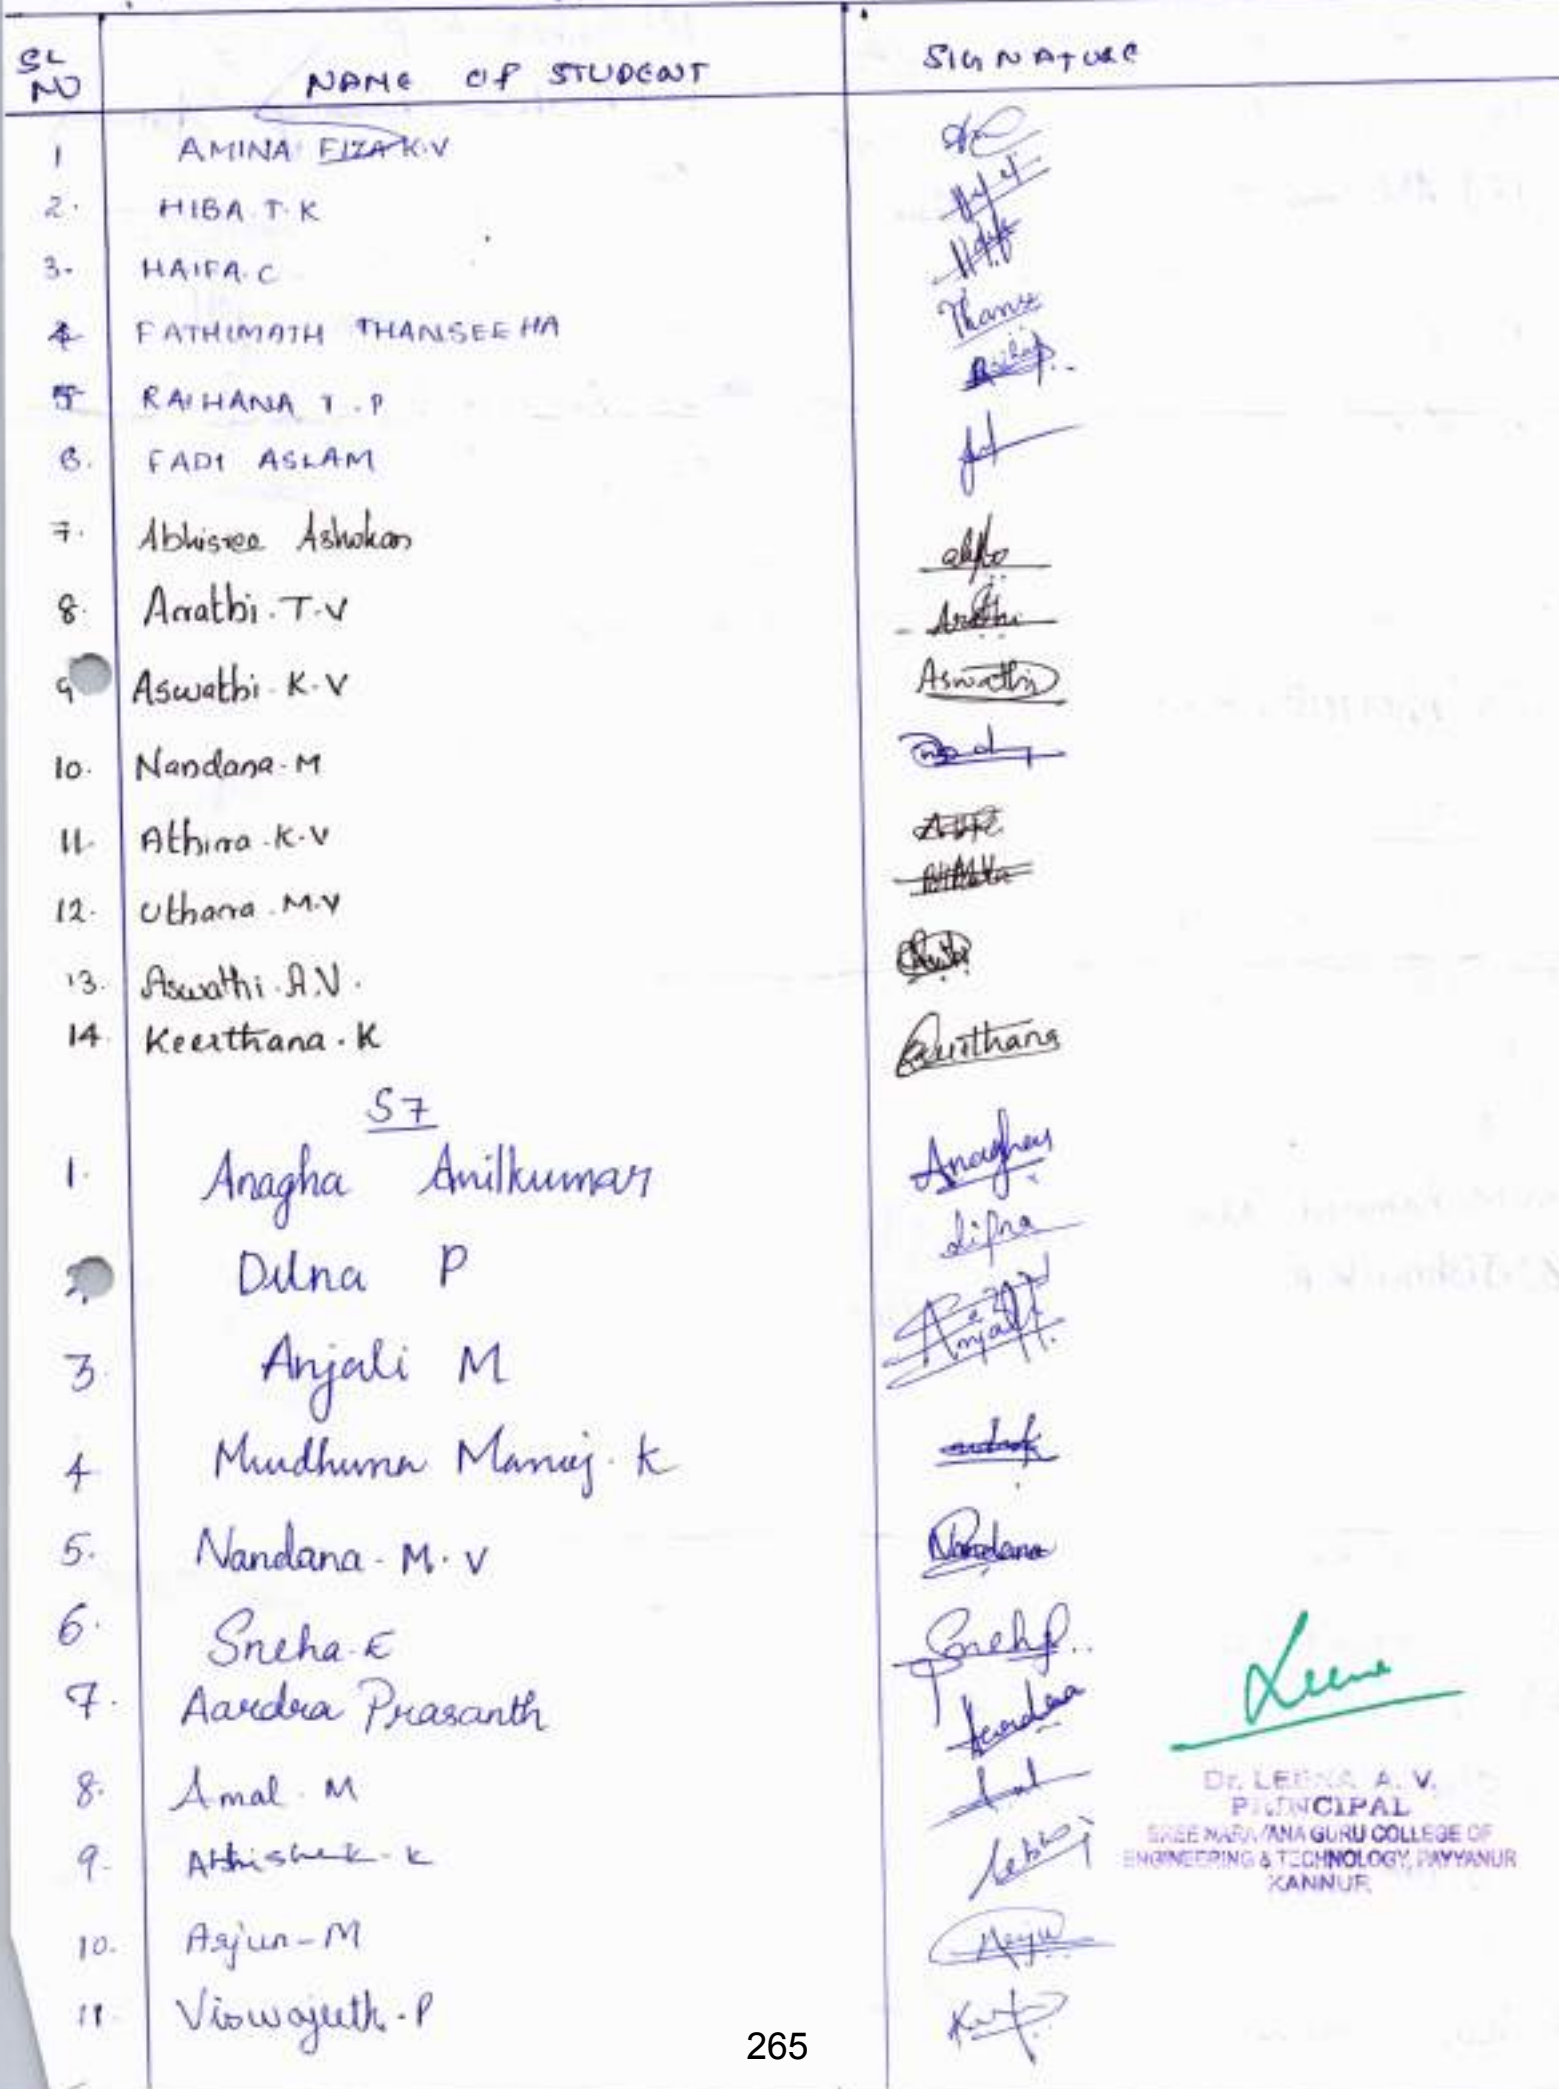 SL NO NAME OF STUDENT SIGNATURE
1 AMINA FIZA K.V
2. HIBA T.K
3. HAIFA.C
4 FATHIMATH THANSEEHA Thanse
5 RAIHANA T.P
6. FADI ASLAM
7. Abhisree Ashokan
8. Arrathi.T.V Arathi
9 Aswathi.K.V Aswathi
10. Nandana.M
11. Athira.K.V
12. Uthara.M.V
13. Aswathi.A.V.
14. Keerthana.K Keerthana
S7
1. Anagha Anilkumar Anagha
2. Dilna P
3. Anjali M Anjali
4 Mridhuna Manoj.K
5. Nandana.M.V Nandana
6. Sneha.E Sneha
7. Aardra Prasanth Aardra
8. Amal.M
9. Abhishek.K
10. Arjun-M Arju
11. Viswajith.P
Leena
Dr. LEENA A. V.
PRINCIPAL
SREE NARAYANA GURU COLLEGE OF
ENGINEERING & TECHNOLOGY, PAYYANUR
KANNUR
265